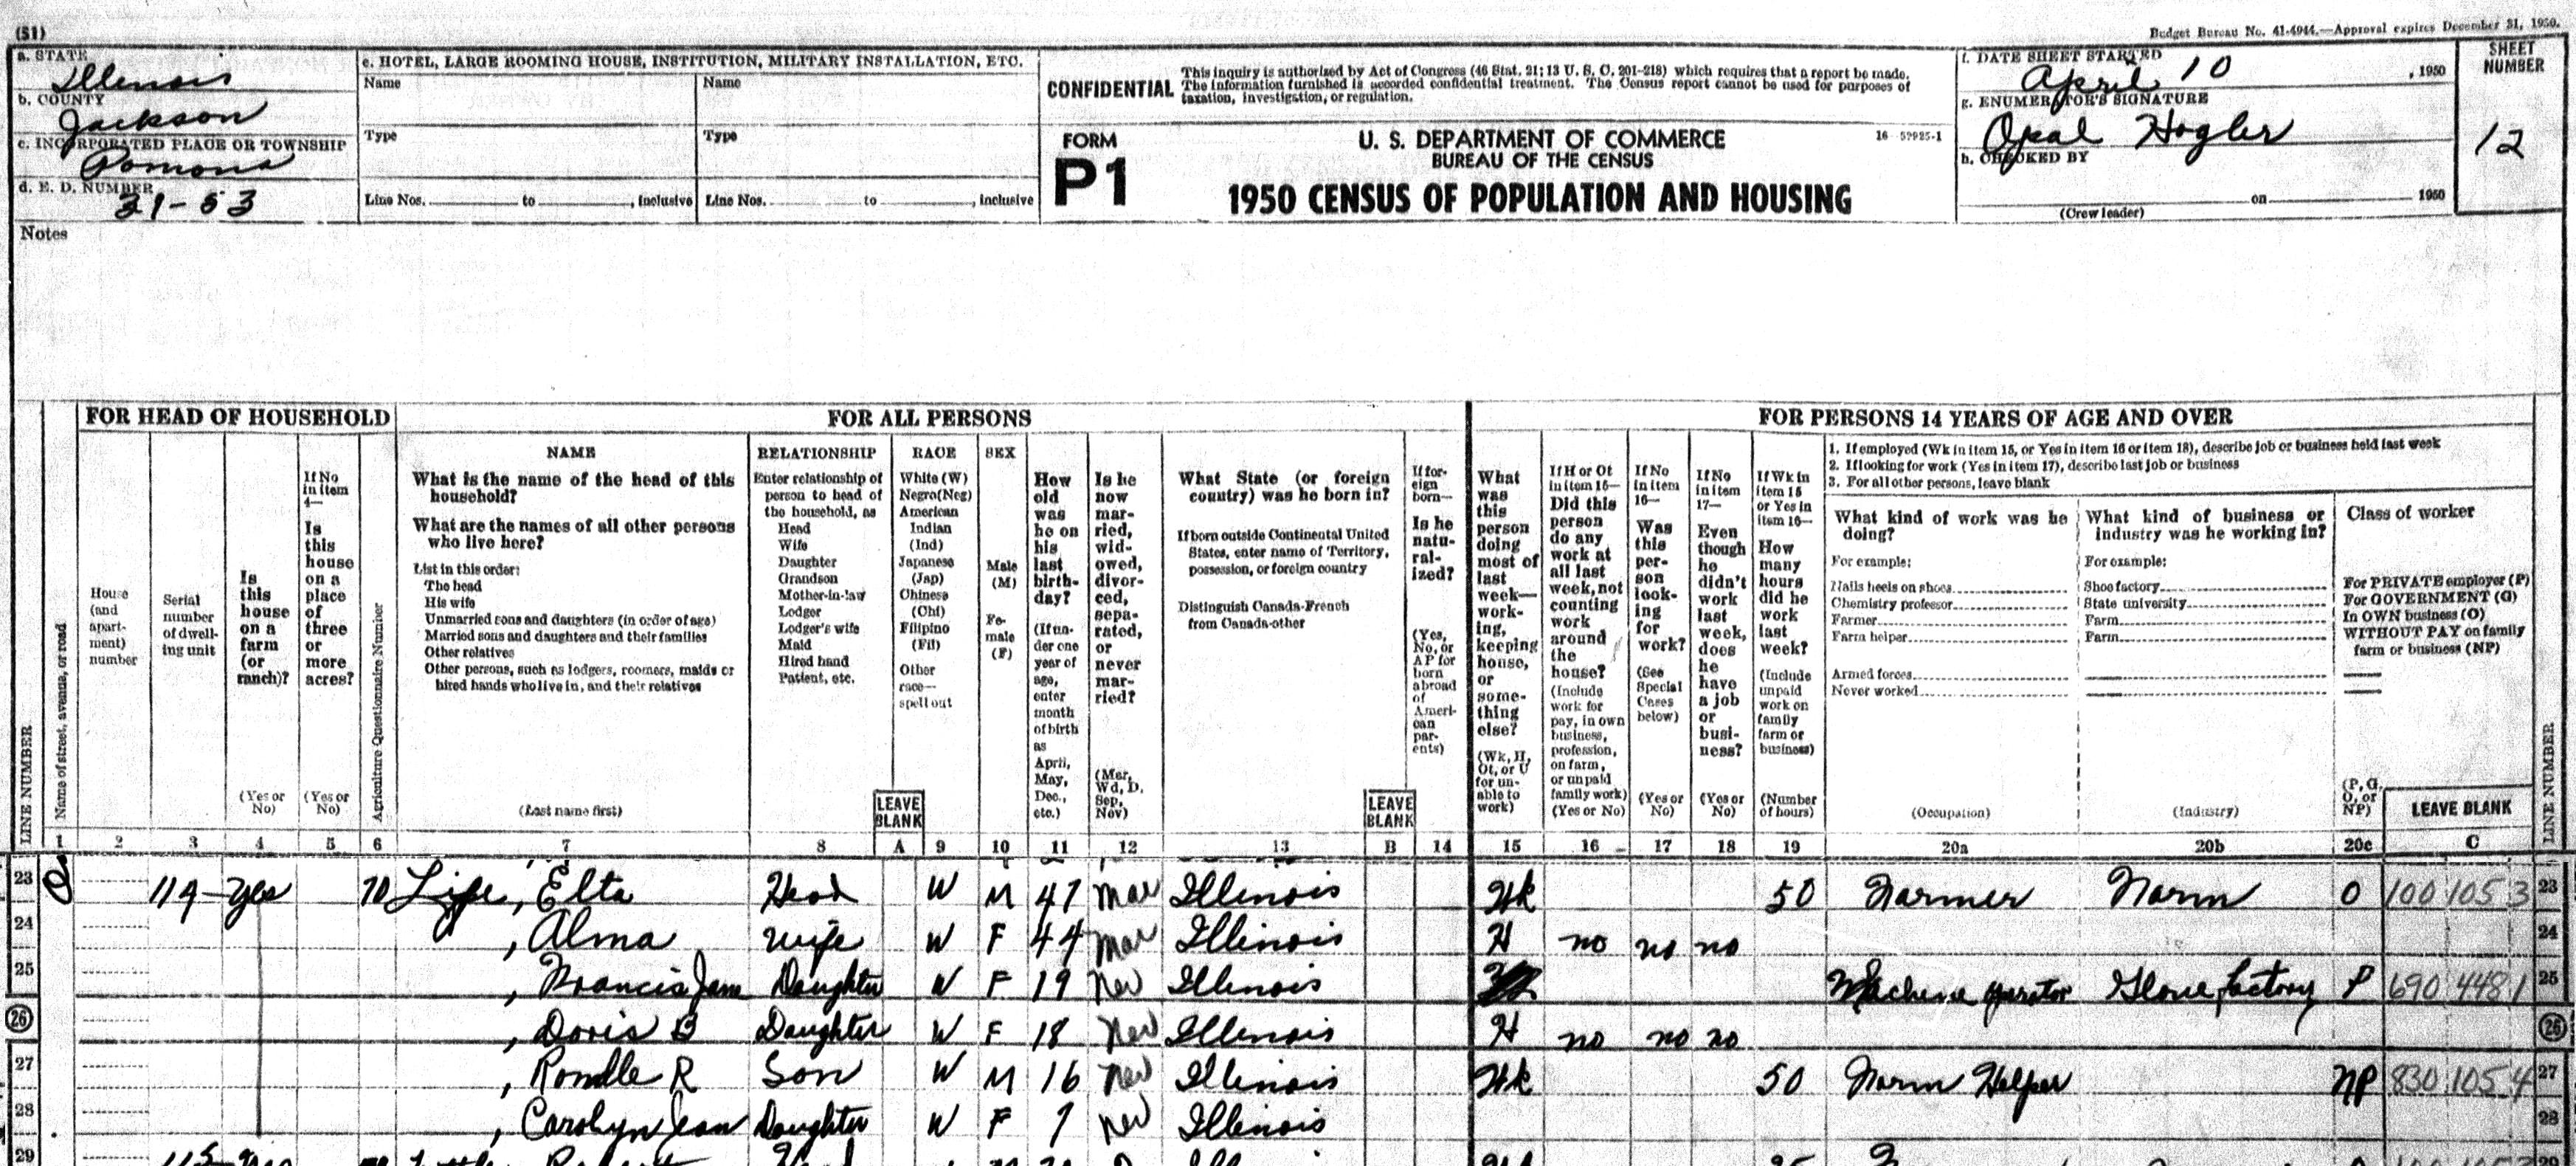 (51)
Budget Bureau No. 41-4944.—Approval expires December 31, 1950.
a. STATE
Illinois
b. COUNTY
Jackson
c. INCORPORATED PLACE OR TOWNSHIP
Pomona
d. E. D. NUMBER
31-53
e. HOTEL, LARGE ROOMING HOUSE, INSTITUTION, MILITARY INSTALLATION, ETC.
Name Name
Type Type
Line Nos. to , inclusive Line Nos. to , inclusive
CONFIDENTIAL
This inquiry is authorized by Act of Congress (46 Stat. 21; 13 U. S. C. 201-218) which requires that a report be made.
The information furnished is accorded confidential treatment. The Census report cannot be used for purposes of
taxation, investigation, or regulation.
FORM
P1
U. S. DEPARTMENT OF COMMERCE
BUREAU OF THE CENSUS
1950 CENSUS OF POPULATION AND HOUSING
16 59925-1
f. DATE SHEET STARTED
April 10 , 1950
g. ENUMERATOR'S SIGNATURE
Opal Hogler
h. CHECKED BY
on 1950
(Crew leader)
SHEET
NUMBER
12
Notes
FOR HEAD OF HOUSEHOLD
FOR ALL PERSONS
FOR PERSONS 14 YEARS OF AGE AND OVER
LINE NUMBER
Name of street, avenue, or road
House
(and
apart-
ment)
number
Serial
number
of dwell-
ing unit
Is
this
house
on a
farm
(or
ranch)?
(Yes or
No)
If No
in item
4—
Is
this
house
on a
place
of
three
or
more
acres?
(Yes or
No)
Agriculture Questionnaire Number
NAME
What is the name of the head of this
household?
What are the names of all other persons
who live here?
List in this order:
The head
His wife
Unmarried sons and daughters (in order of age)
Married sons and daughters and their families
Other relatives
Other persons, such as lodgers, roomers, maids or
hired hands who live in, and their relatives
(Last name first)
RELATIONSHIP
Enter relationship of
person to head of
the household, as
Head
Wife
Daughter
Grandson
Mother-in-law
Lodger
Lodger's wife
Maid
Hired hand
Patient, etc.
LEAVE
BLANK
RACE
White (W)
Negro(Neg)
American
Indian
(Ind)
Japanese
(Jap)
Chinese
(Chi)
Filipino
(Fil)
Other
race—
spell out
SEX
Male
(M)
Fe-
male
(F)
How
old
was
he on
his
last
birth-
day?
(If un-
der one
year of
age,
enter
month
of birth
as
April,
May,
Dec.,
etc.)
Is he
now
mar-
ried,
wid-
owed,
divor-
ced,
sepa-
rated,
or
never
mar-
ried?
(Mar,
Wd, D,
Sep,
Nev)
What State (or foreign
country) was he born in?
If born outside Continental United
States, enter name of Territory,
possession, or foreign country
Distinguish Canada-French
from Canada-other
LEAVE
BLANK
If for-
eign
born—
Is he
natu-
ral-
ized?
(Yes,
No, or
AP for
born
abroad
of
Ameri-
can
par-
ents)
What
was
this
person
doing
most of
last
week—
work-
ing,
keeping
house,
or
some-
thing
else?
(Wk, H,
Ot, or U
for un-
able to
work)
If H or Ot
in item 15—
Did this
person
do any
work at
all last
week, not
counting
work
around
the
house?
(Include
work for
pay, in own
business,
profession,
on farm,
or unpaid
family work)
(Yes or No)
If No
in item
16—
Was
this
per-
son
look-
ing
for
work?
(See
Special
Cases
below)
(Yes or
No)
If No
in item
17—
Even
though
he
didn't
work
last
week,
does
he
have
a job
or
busi-
ness?
(Yes or
No)
If Wk in
item 15
or Yes in
item 16—
How
many
hours
did he
work
last
week?
(Include
unpaid
work on
family
farm or
business)
(Number
of hours)
1. If employed (Wk in item 15, or Yes in item 16 or item 18), describe job or business held last week
2. If looking for work (Yes in item 17), describe last job or business
3. For all other persons, leave blank
What kind of work was he
doing?
For example:
Nails heels on shoes
Chemistry professor
Farmer
Farm helper
Armed forces
Never worked
(Occupation)
What kind of business or
industry was he working in?
For example:
Shoe factory
State university
Farm
Farm
(Industry)
Class of worker
For PRIVATE employer (P)
For GOVERNMENT (G)
In OWN business (O)
WITHOUT PAY on family
farm or business (NP)
(P, G,
O, or
NP)
LEAVE BLANK
LINE NUMBER
1 2 3 4 5 6 7 8 A 9 10 11 12 13 B 14 15 16 17 18 19 20a 20b 20c C
23 114 yes 70 Lipe, Elta Head W M 47 Mar Illinois Wk 50 Farmer Farm O 100 105 3 23
24 , Alma wife W F 44 Mar Illinois H no no no 24
25 , Francis Jane Daughter W F 19 Nev Illinois Machine operator Glove factory P 690 448 1 25
26 , Doris B Daughter W F 18 Nev Illinois H no no no 26
27 , Rondle R Son W M 16 Nev Illinois Wk 50 Farm Helper NP 830 105 4 27
28 , Carolyn Jean Daughter W F 7 Nev Illinois 28
29 115 29